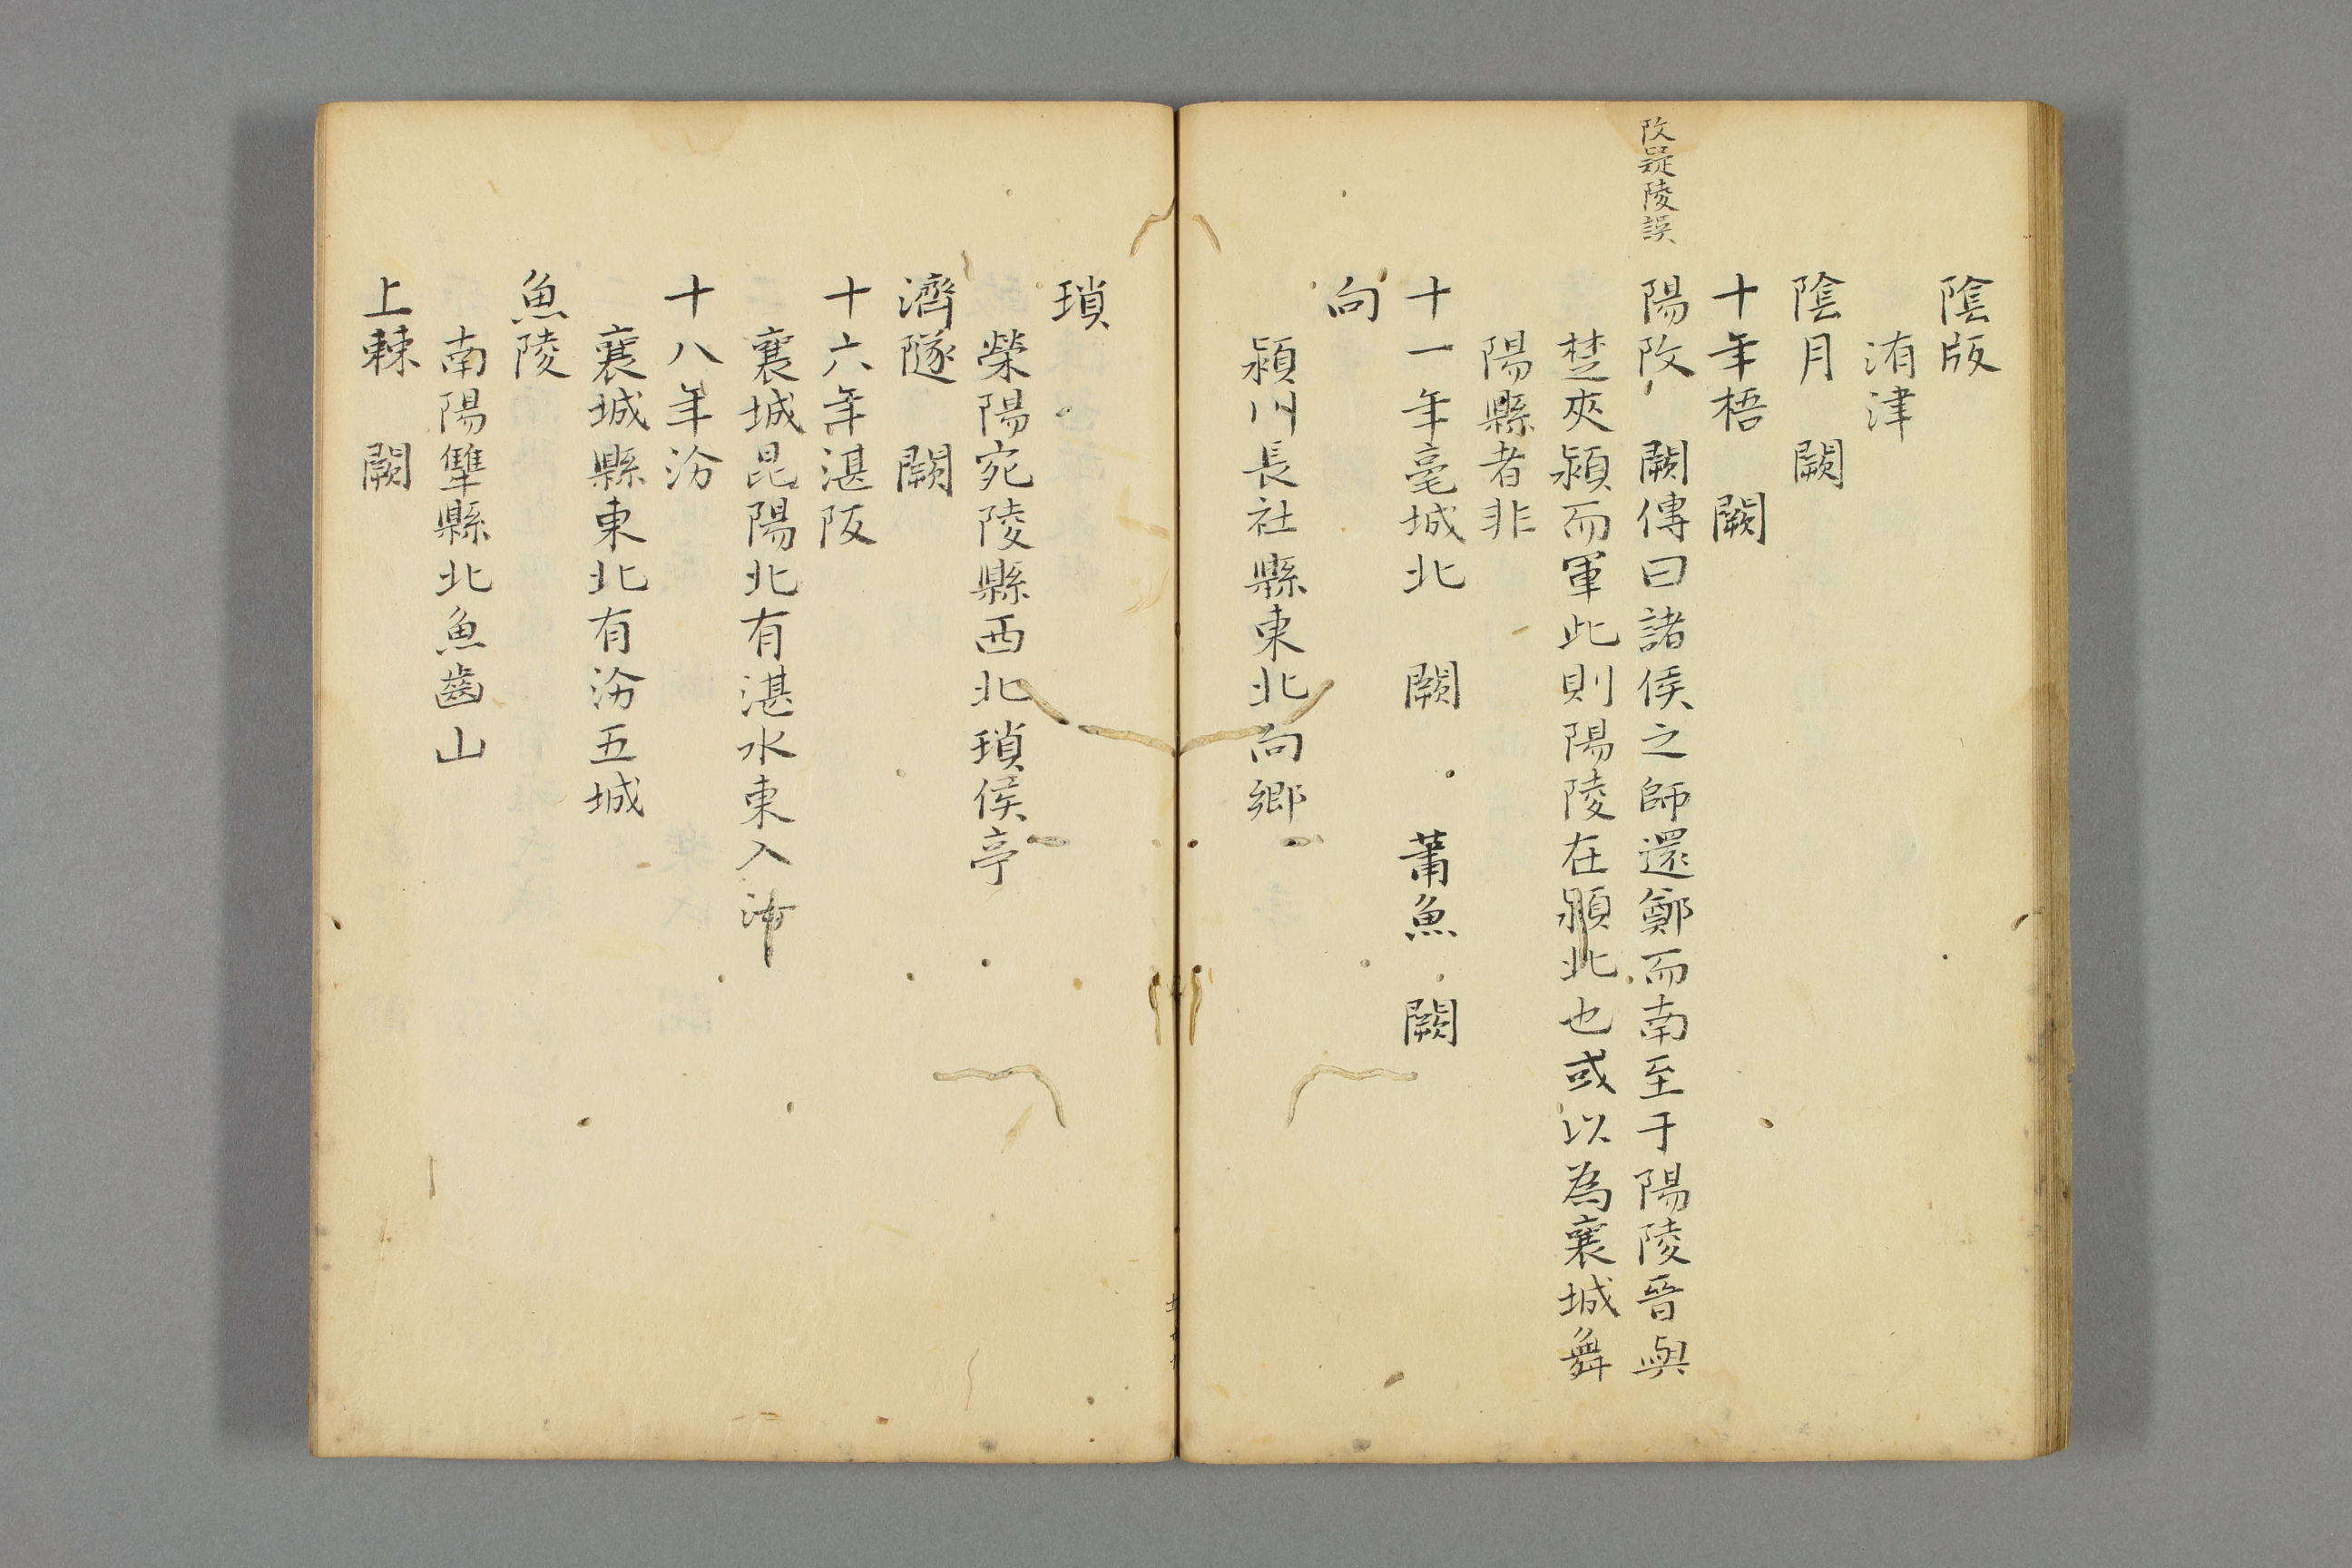 陰版
洧津
陰月　闕
十年梧　闕
阪疑陵誤
陽阪　闕傳曰諸侯之師還鄭而南至于陽陵晉與
楚夾潁而軍此則陽陵在潁北也或以為襄城舞
陽縣者非
十一年亳城北　闕　蕭魚　闕
向
潁川長社縣東北向鄉
瑣
滎陽宛陵縣西北瑣侯亭
濟隧　闕
十六年湛阪
襄城昆陽北有湛水東入
十八年汾
襄城縣東北有汾丘城
魚陵
南陽犨縣北魚齒山
上棘　闕